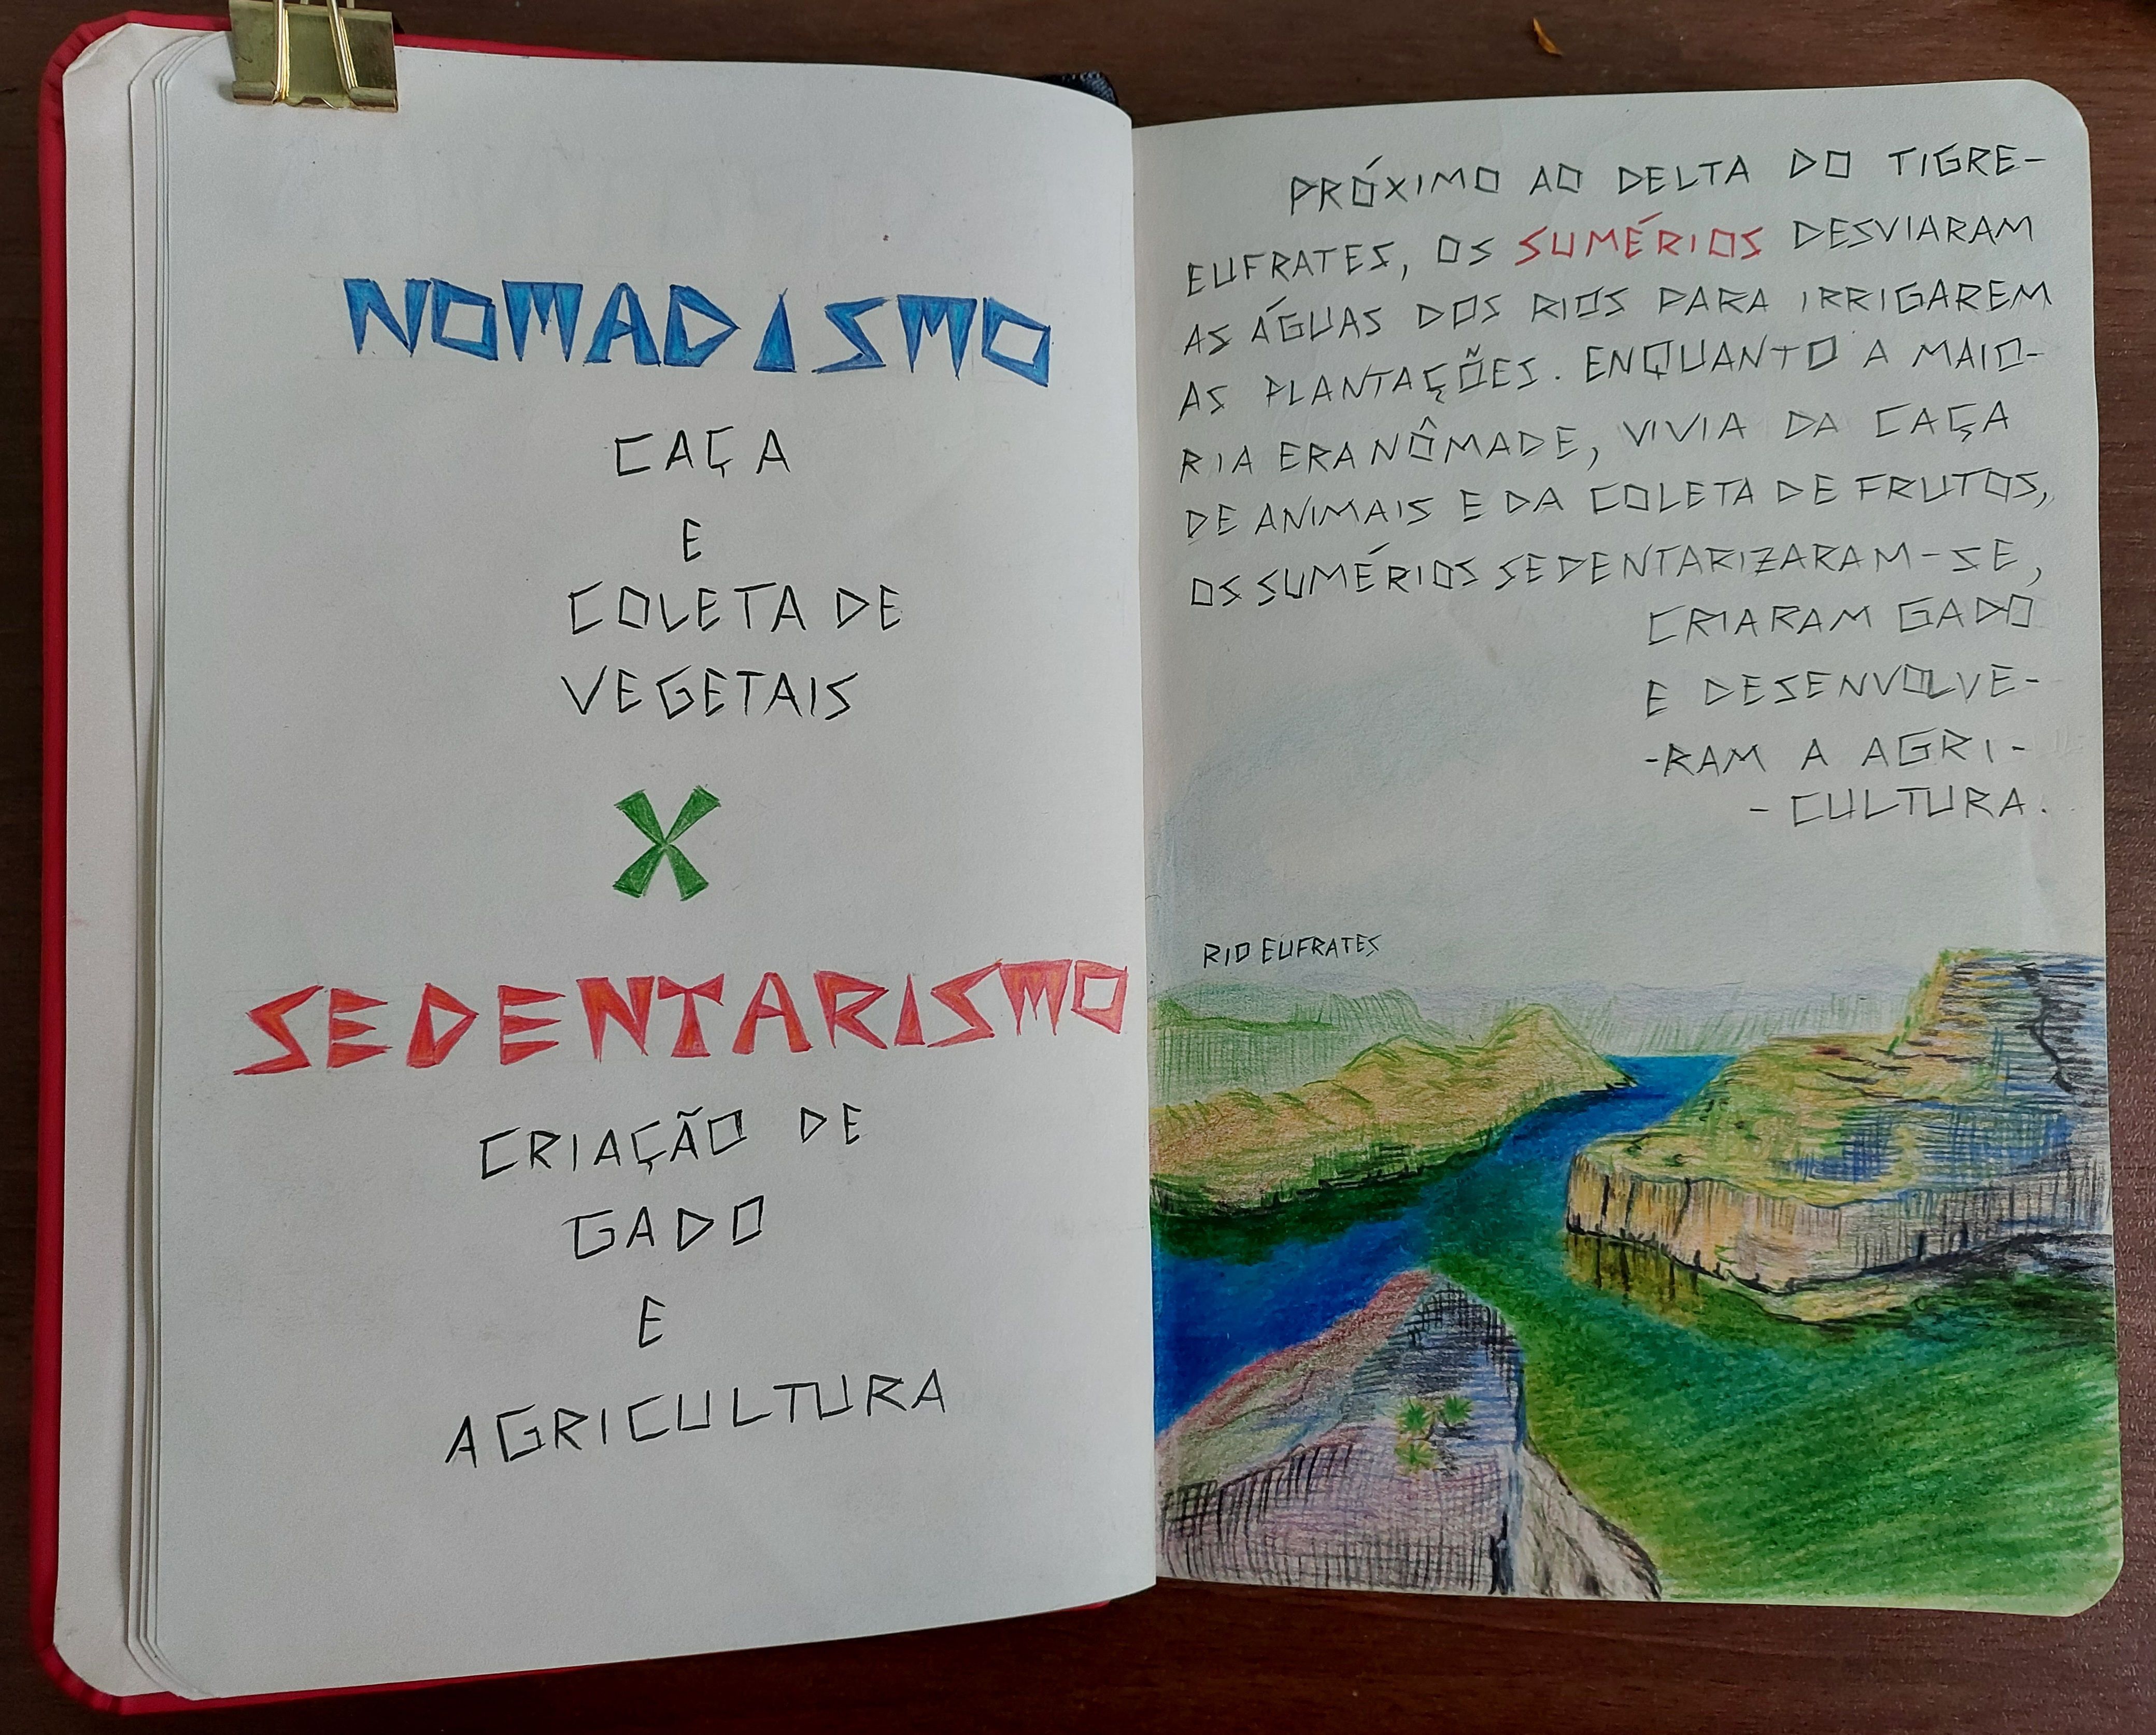 NOMADISMO
CAÇA
E
COLETA DE
VEGETAIS
X
SEDENTARISMO
CRIAÇÃO DE
GADO
E
AGRICULTURA
PRÓXIMO AO DELTA DO TIGRE-
EUFRATES, OS SUMÉRIOS DESVIARAM
AS ÁGUAS DOS RIOS PARA IRRIGAREM
AS PLANTAÇÕES. ENQUANTO A MAIO-
RIA ERA NÔMADE, VIVIA DA CAÇA
DE ANIMAIS E DA COLETA DE FRUTOS,
OS SUMÉRIOS SEDENTARIZARAM-SE,
CRIARAM GADO
E DESENVOLVE-
-RAM A AGRI-
-CULTURA.
RIO EUFRATES